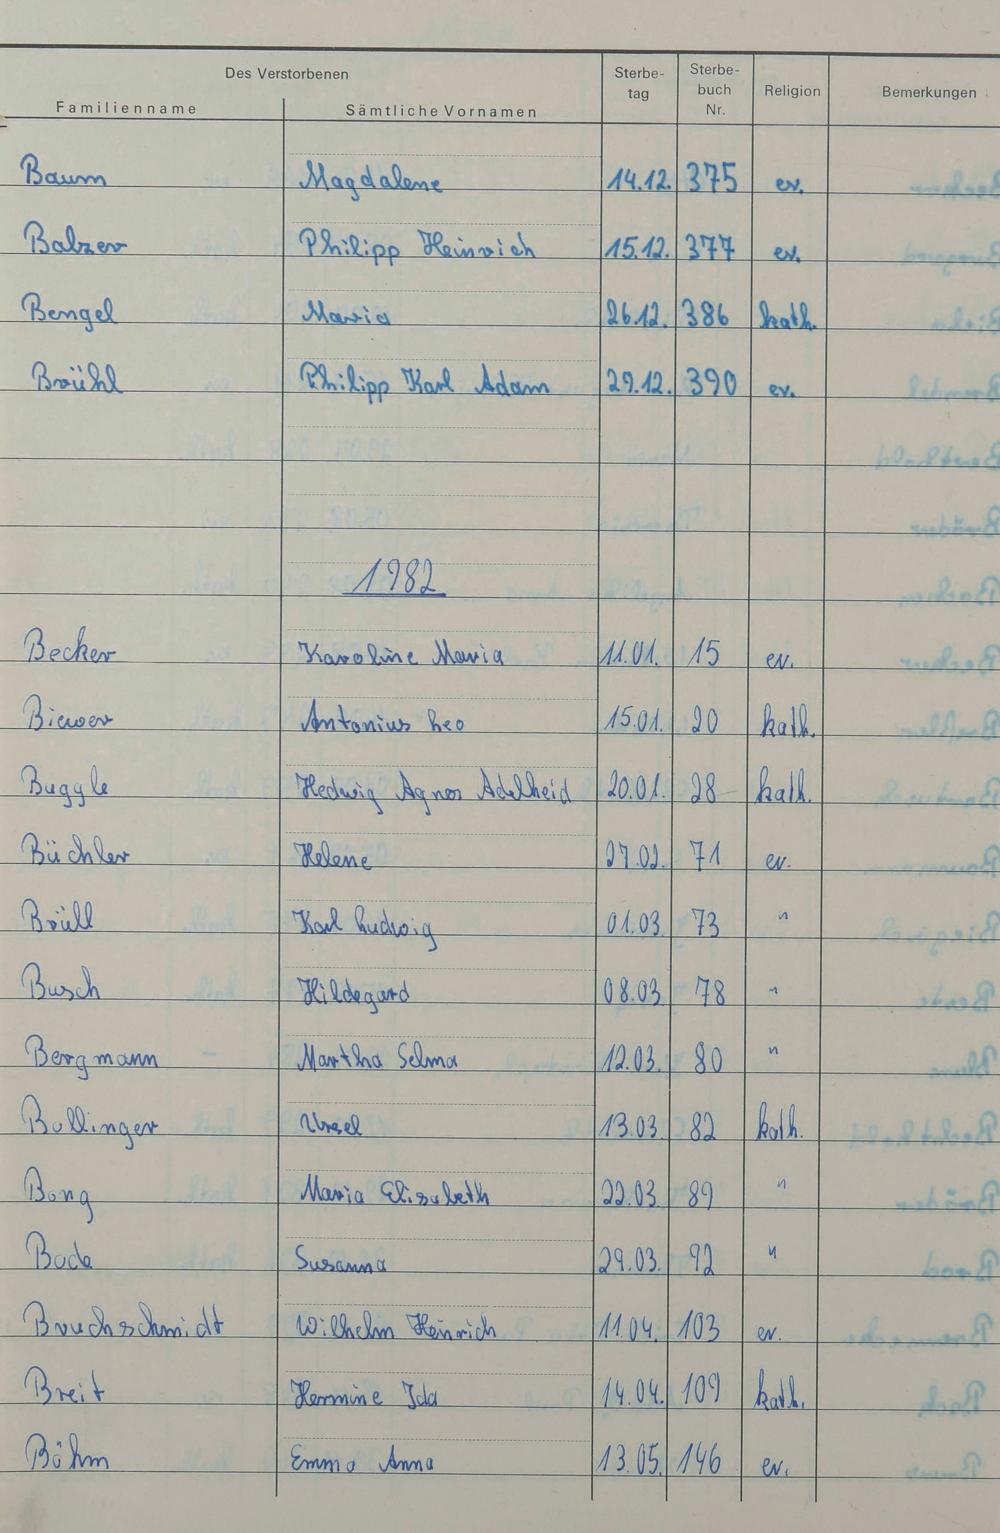 Des Verstorbenen Sterbe- Sterbe-
tag buch Religion Bemerkungen
Familienname Sämtliche Vornamen Nr.
Baum Magdalene 14.12. 375 ev.
Balzer Philipp Heinrich 15.12. 377 ev.
Bengel Maria 26.12. 386 kath.
Brühl Philipp Karl Adam 29.12. 390 ev.
1982
Becker Karoline Maria 11.01. 15 ev.
Biewer Antonius Leo 15.01. 20 kath.
Buggle Hedwig Agnes Adelheid 20.01. 28 kath.
Büchler Helene 27.02. 71 ev.
Brüll Karl Ludwig 01.03. 73 "
Busch Hildegard 08.03. 78 "
Bergmann Martha Selma 12.03. 80 "
Bollinger Ursel 13.03. 82 kath.
Bong Maria Elisabeth 22.03. 89 "
Bode Susanna 29.03. 92 "
Bruchschmidt Wilhelm Heinrich 11.04. 103 ev.
Breit Hermine Ida 14.04. 109 kath.
Böhm Emma Anna 13.05. 146 ev.